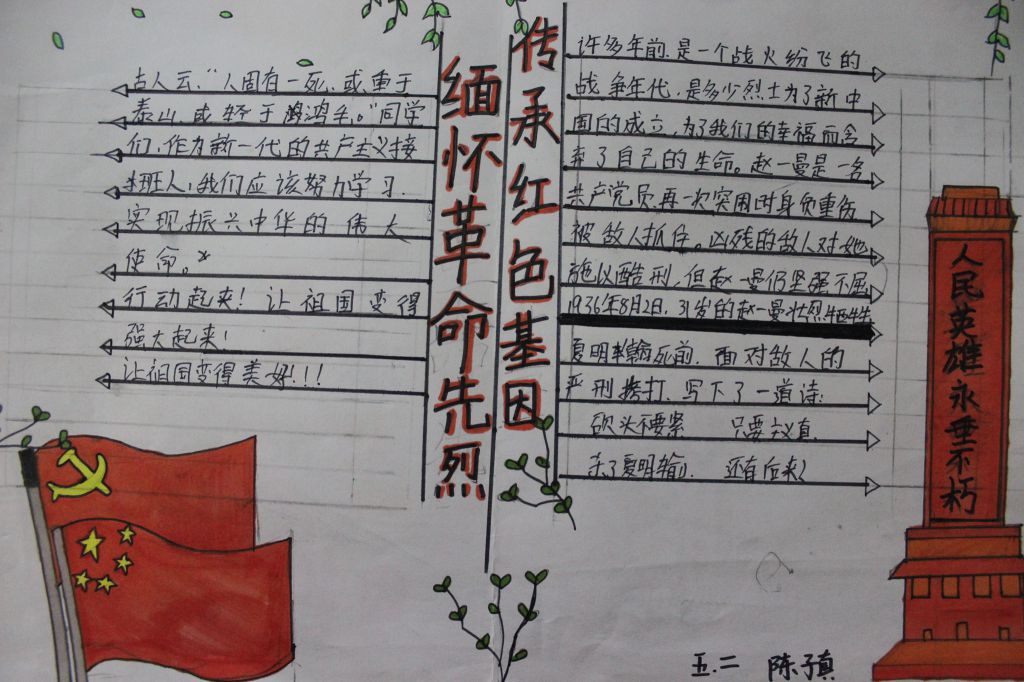 传承红色基因
缅怀革命先烈
许多年前是一个战火纷飞的
战争年代，是多少烈士为了新中
国的成立，为了我们的幸福而舍
弃了自己的生命。赵一曼是一名
共产党员，再一次突围时身负重伤
被敌人抓住。凶残的敌人对她
施以酷刑，但赵一曼仍坚强不屈
1936年8月2日，31岁的赵一曼壮烈牺牲
夏明翰死前，面对敌人的
严刑拷打，写下了一道诗：
砍头不要紧 只要主义真
杀了夏明翰 还有后来人
古人云：“人固有一死，或重于
泰山，或轻于鸿毛。”同学
们，作为新一代的共产主义接
班人，我们应该努力学习
实现振兴中华的伟大
使命。
行动起来！让祖国变得
强大起来！
让祖国变得美好！！！
人民英雄永垂不朽
五.二 陈子真